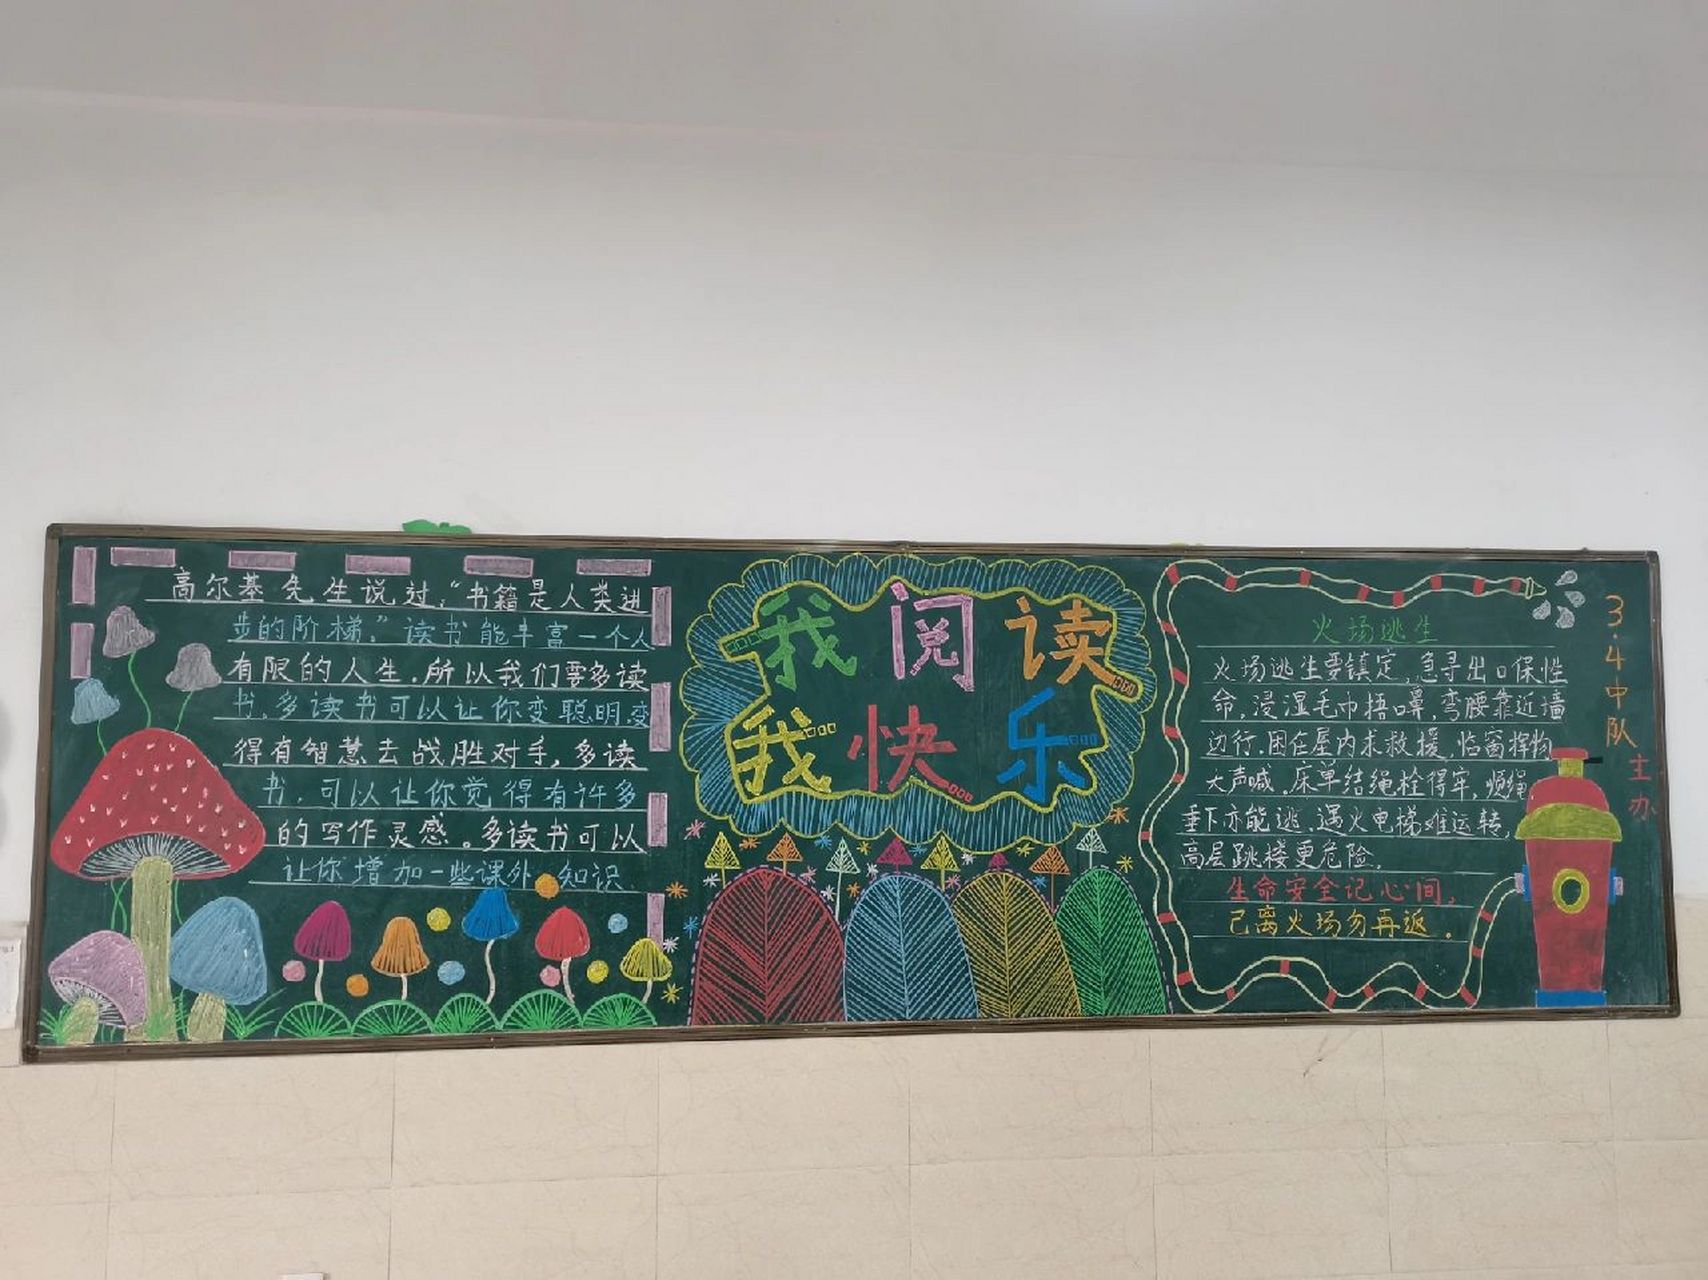 高尔基先生说过:“书籍是人类进
步的阶梯,”读书能丰富一个人
有限的人生,所以我们要多读
书,多读书可以让你变聪明,变
得有智慧去战胜对手,多读
书,可以让你觉得有许多
的写作灵感。多读书可以
让你增加一些课外知识
我阅读
我快乐
火场逃生
火场逃生要镇定,急寻出口保性
命,浸湿毛巾捂口鼻,弯腰靠近墙
边行,困在屋内求救援,临窗挥物
大声喊。床单结绳栓得牢,顺绳
垂下亦能逃,遇火电梯难运转,
高层跳楼更危险,
生命安全记心间,
已离火场勿再返。
3·4中队主办